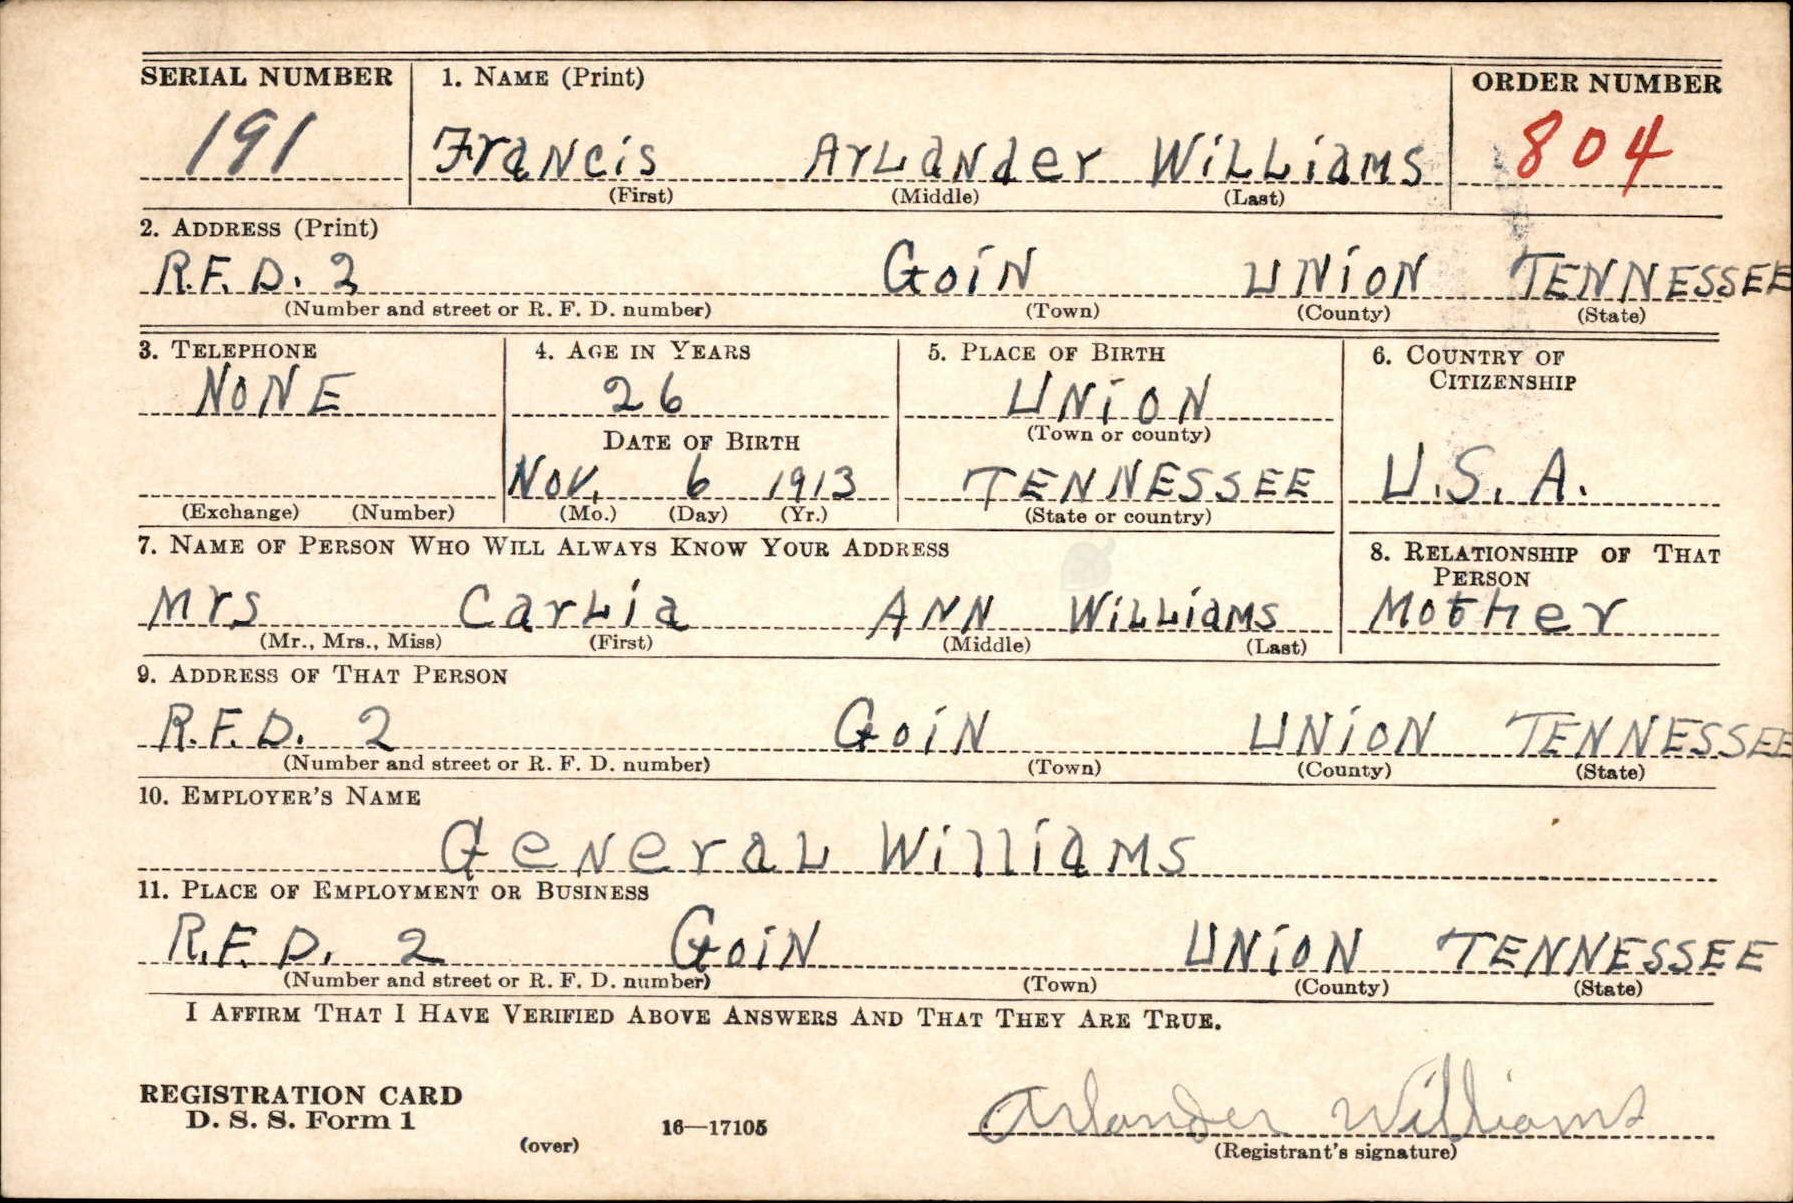 SERIAL NUMBER 1. NAME (Print) ORDER NUMBER
191 Francis Arlander Williams 804
(First) (Middle) (Last)
2. ADDRESS (Print)
R.F.D. 2 Goin UNION TENNESSEE
(Number and street or R. F. D. number) (Town) (County) (State)
3. TELEPHONE 4. AGE IN YEARS 5. PLACE OF BIRTH 6. COUNTRY OF CITIZENSHIP
NONE 26 UNION
DATE OF BIRTH (Town or county)
Nov. 6 1913 TENNESSEE U.S.A.
(Exchange) (Number) (Mo.) (Day) (Yr.) (State or country)
7. NAME OF PERSON WHO WILL ALWAYS KNOW YOUR ADDRESS 8. RELATIONSHIP OF THAT PERSON
Mrs Carlia Ann Williams Mother
(Mr., Mrs., Miss) (First) (Middle) (Last)
9. ADDRESS OF THAT PERSON
R.F.D. 2 Goin UNION TENNESSEE
(Number and street or R. F. D. number) (Town) (County) (State)
10. EMPLOYER'S NAME
General Williams
11. PLACE OF EMPLOYMENT OR BUSINESS
R.F.D. 2 Goin UNION TENNESSEE
(Number and street or R. F. D. number) (Town) (County) (State)
I AFFIRM THAT I HAVE VERIFIED ABOVE ANSWERS AND THAT THEY ARE TRUE.
REGISTRATION CARD
D. S. S. Form 1 16—17105 Arlander Williams
(over) (Registrant's signature)